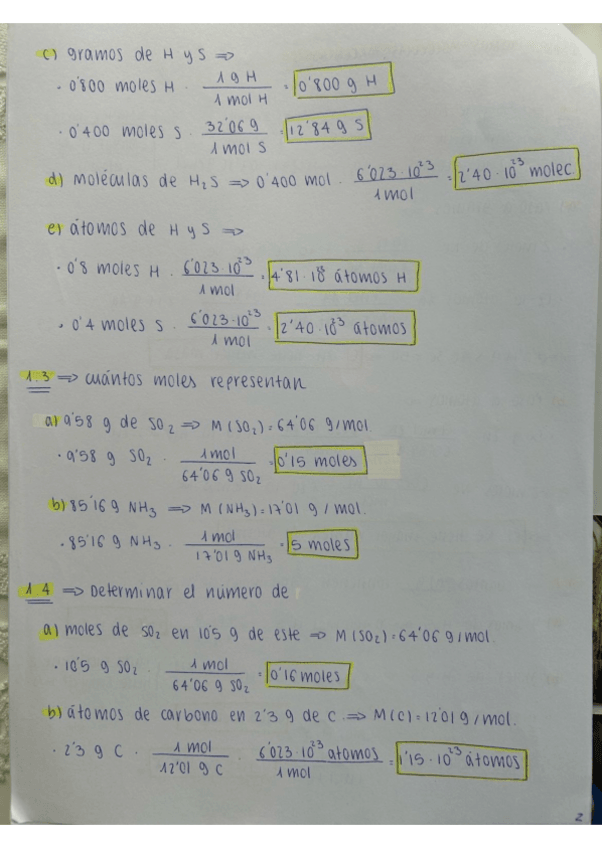 c) gramos de H y S ⇒
· 0'800 moles H · 1 g H / 1 mol H = 0'800 g H
· 0'400 moles S · 32'06 g / 1 mol S = 12'84 g S
d) moléculas de H₂S ⇒ 0'400 mol · 6'023·10²³ / 1 mol = 2'40·10²³ molec
e) átomos de H y S ⇒
· 0'8 moles H · 6'023·10²³ / 1 mol = 4'81·10 átomos H
· 0'4 moles S · 6'023·10²³ / 1 mol = 2'40·10²³ átomos
1.3 ⇒ cuántos moles representan
a) 9'58 g de SO₂ ⇒ M(SO₂)=64'06 g/mol.
· 9'58 g SO₂ · 1 mol / 64'06 g SO₂ = 0'15 moles
b) 85'16 g NH₃ ⇒ M(NH₃)=17'01 g/mol.
· 85'16 g NH₃ · 1 mol / 17'01 g NH₃ = 5 moles
1.4 ⇒ Determinar el número de
a) moles de SO₂ en 10'5 g de este ⇒ M(SO₂)=64'06 g/mol
· 10'5 g SO₂ · 1 mol / 64'06 g SO₂ = 0'16 moles
b) átomos de carbono en 2'3 g de C ⇒ M(C)=12'01 g/mol.
· 2'3 g C · 1 mol / 12'01 g C · 6'023·10²³ átomos / 1 mol = 1'15·10²³ átomos
2